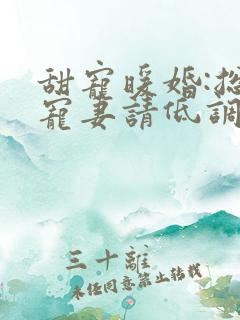 甜寵暖婚:
寵妻請低調
三十離
未经同意禁止转载